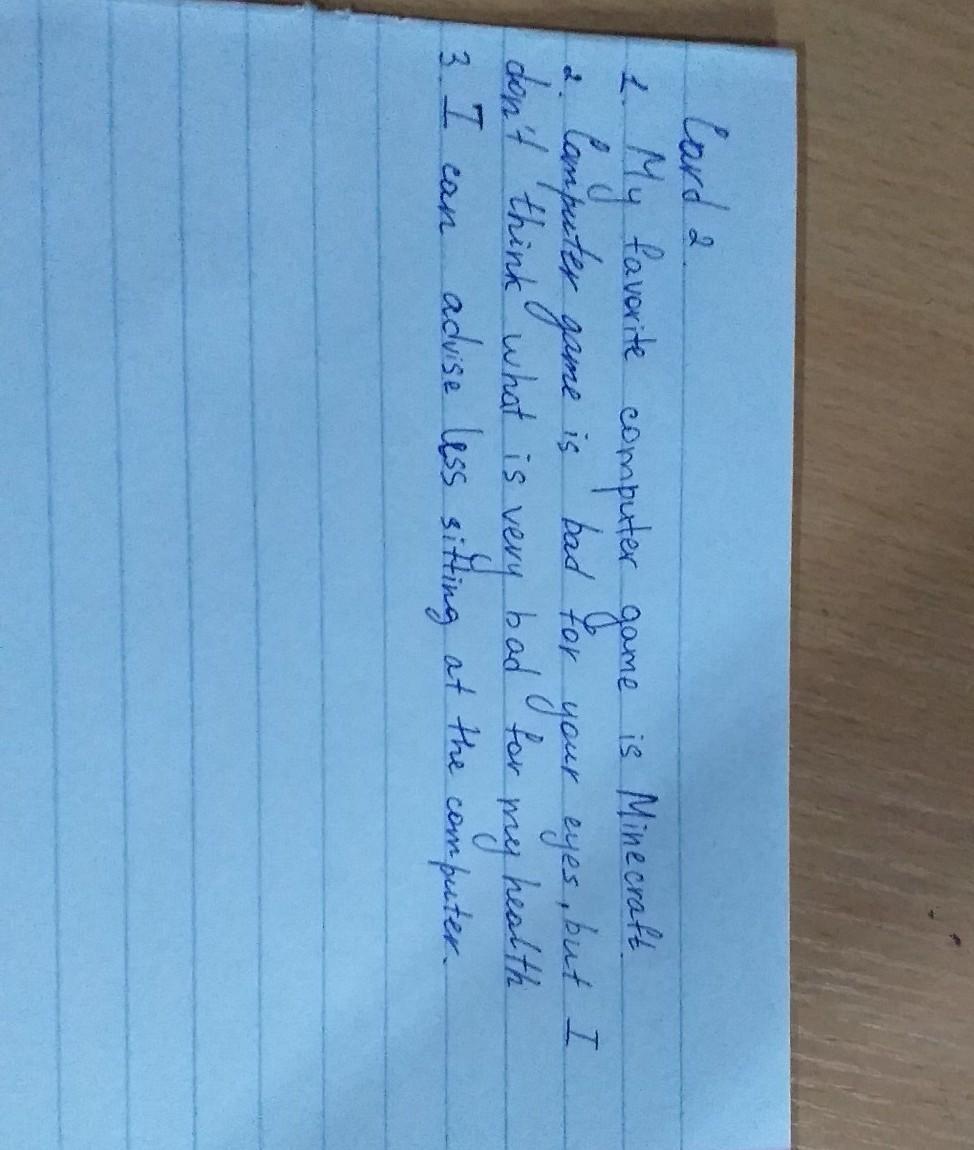 Card 2.
1. My favorite computer game is Minecraft.
2. Computer game is bad for your eyes, but I
don't think what is very bad for my health
3. I can advise less sitting at the computer.